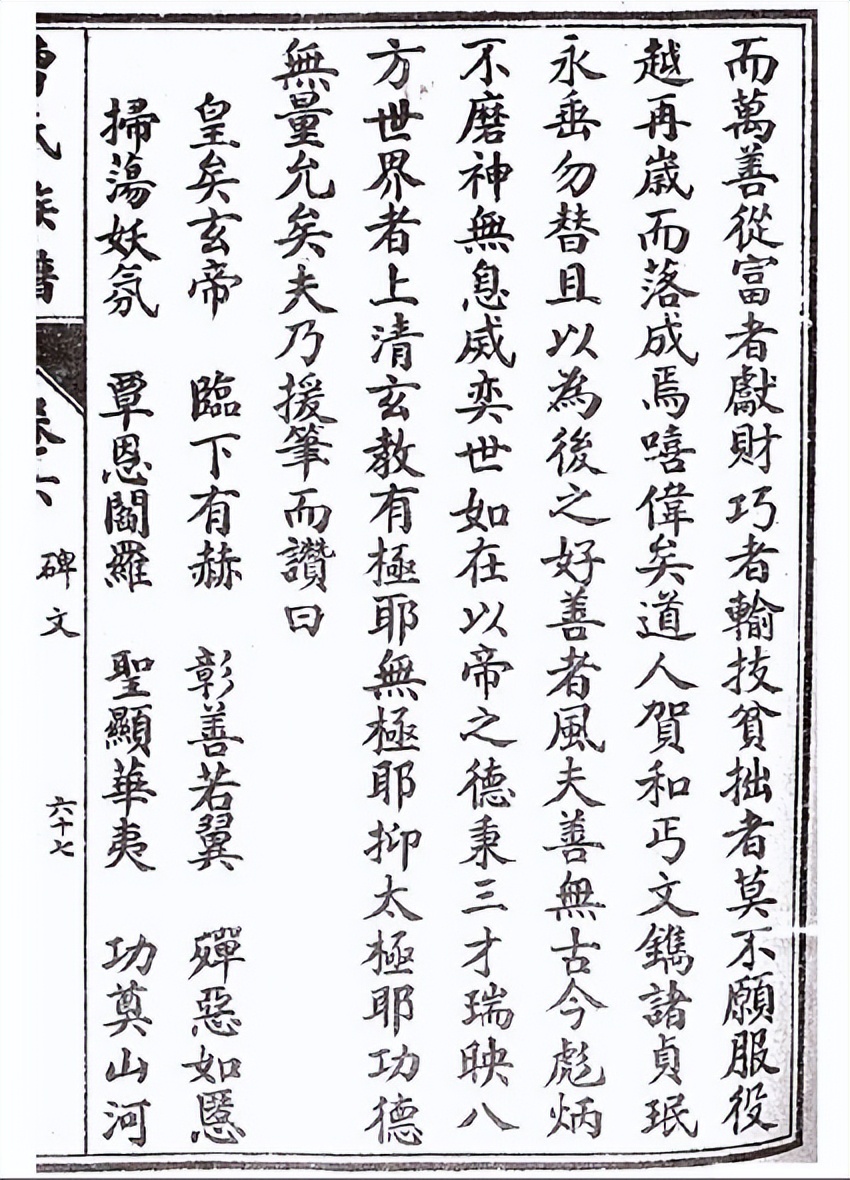 而萬善從富者獻財巧者輸技貧拙者莫不願服役
越再歲而落成焉嘻偉矣道人賀和丐文鐫諸貞珉
永垂勿替且以為後之好善者風夫善無古今彪炳
不磨神無息威奕世如在以帝之德秉三才瑞映八
方世界者上清玄教有極耶無極耶抑太極耶功德
無量允矣夫乃援筆而讚曰
皇矣玄帝 臨下有赫 彰善若翼 殫惡如
掃蕩妖氛 覃恩閻羅 聖顯華夷 功奠山河
氏族譜 卷六 碑文 六十七